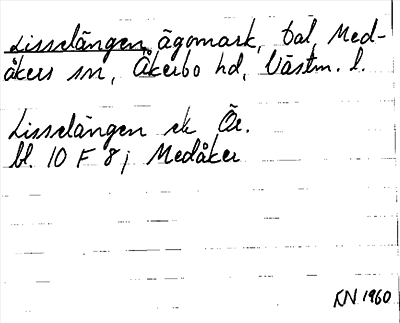 Lisselängen, ägomark, bal, Med-
åkers sn, Åkerbo hd, Västm. l.
Lisselängen ek Öe.
bl. 10 F 8 j Medåker
KN 1960